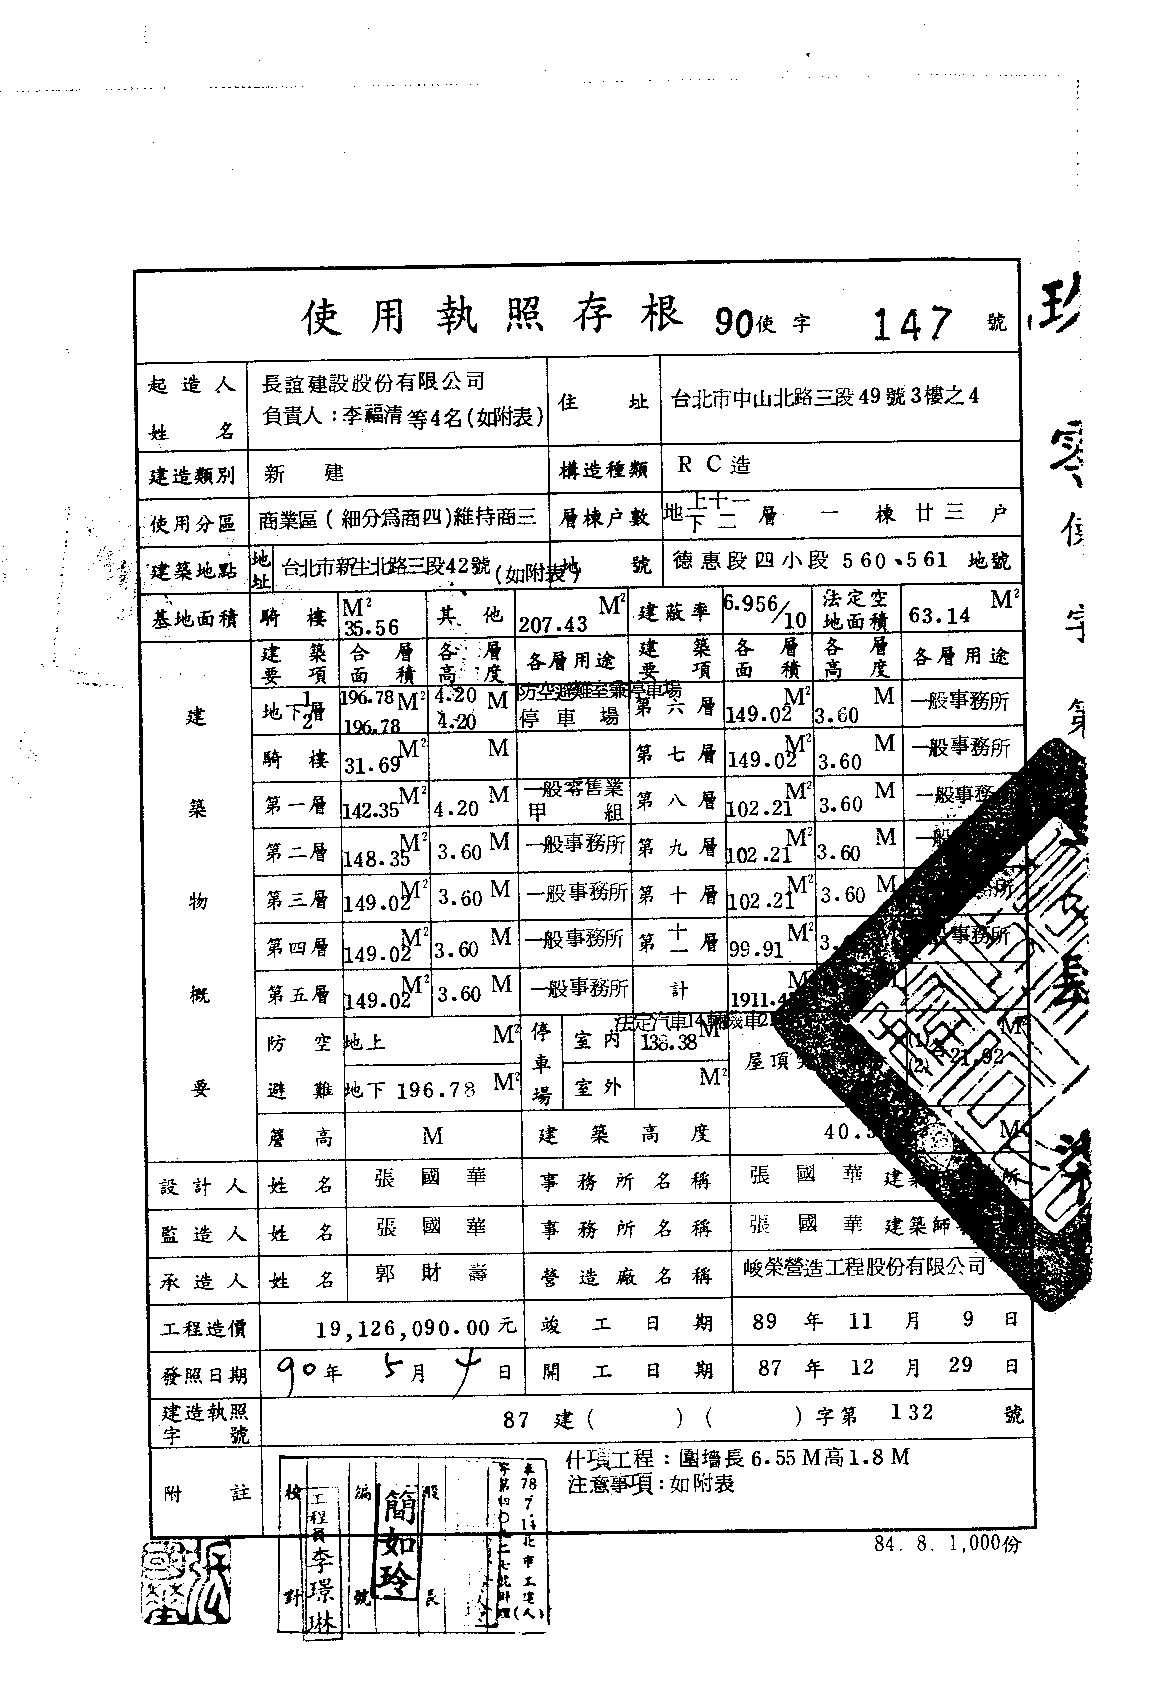 使用執照存根 90使字 147 號
起造人姓名 長誼建設股份有限公司 負責人：李福清等4名(如附表) 住址 台北市中山北路三段49號3樓之4
建造類別 新建 構造種類 RC造
使用分區 商業區(細分為商四)維持商三 層棟戶數 地上十一下二層一棟廿三戶
建築地點 地址 台北市新生北路三段42號(如附表) 地號 德惠段四小段560、561地號
基地面積 騎樓 M² 35.56 其他 207.43 M² 建蔽率 6.956/10 法定空地面積 63.14 M²
建築物概要
建築要項 各層面積 各層高度 各層用途 建築要項 各層面積 各層高度 各層用途
地下1層 196.78 M² 4.20 M 防空避難室兼停車場 第六層 149.02 M² 3.60 M 一般事務所
2 196.78 4.20 停車場
騎樓 31.69 M² M 第七層 149.02 M² 3.60 M 一般事務所
第一層 142.35 M² 4.20 M 一般零售業甲組 第八層 102.21 M² 3.60 M 一般事務
第二層 148.35 M² 3.60 M 一般事務所 第九層 102.21 M² 3.60 M 一般
第三層 149.02 M² 3.60 M 一般事務所 第十層 102.21 M² 3.60 M 所
第四層 149.02 M² 3.60 M 一般事務所 第十一層 99.91 M² 3. 般事務所
第五層 149.02 M² 3.60 M 一般事務所 計 1911.4
法定汽車14輛機車2
防空避難 地上 M² 停車場 室內 138.38 M² 屋頂 (1) (2) 21.92 M²
地下 196.78 M² 室外 M²
簷高 M 建築高度 40. M
設計人 姓名 張國華 事務所名稱 張國華建 所
監造人 姓名 張國華 事務所名稱 張國華建築師
承造人 姓名 郭財壽 營造廠名稱 峻榮營造工程股份有限公司
工程造價 19,126,090.00元 竣工日期 89年11月9日
發照日期 90年5月4日 開工日期 87年12月29日
建造執照字號 87建( )( )字第132號
附註 什項工程：圍墻長6.55M高1.8M
注意事項：如附表
校對 工程員李璟琳 編號 簡如玲 股長
84.8.1,000份
零使字第